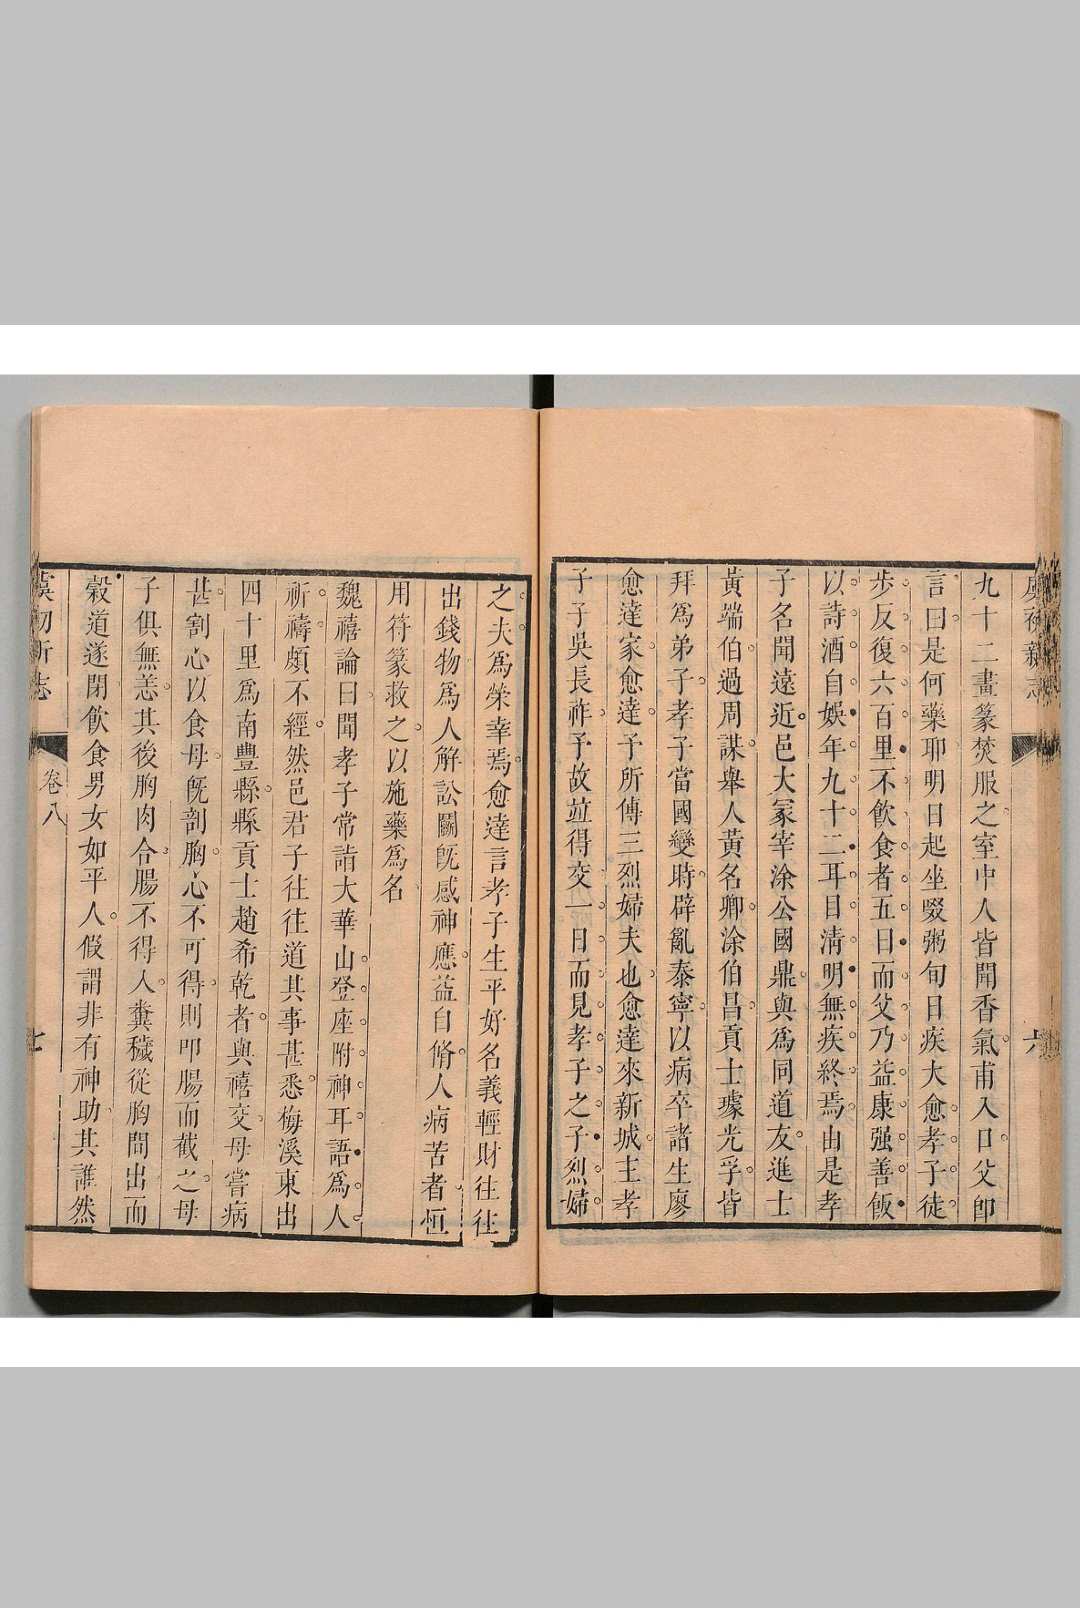 虞初新志
六
九十二畫篆焚服之室中人皆聞香氣甫入口父卽
言曰是何藥耶明日起坐啜粥旬日疾大愈孝子徒
步反復六百里不飮食者五日而父乃益康强善飯
以詩酒自娛年九十二耳目清明無疾終焉由是孝
子名聞遠近邑大冡宰涂公國鼎與爲同道友進士
黃端伯過周謀舉人黃名卿涂伯昌貢士璩光孚皆
拜爲弟子孝子當國變時辟亂泰寧以病卒諸生廖
愈達家愈達予所傳三烈婦夫也愈達來新城主孝
子子吳長祚予故竝得交一日而見孝子之子烈婦
之夫爲榮幸焉愈達言孝子生平好名義輕財往往
出錢物爲人解訟鬭旣感神應益自脩人病苦者恒
用符篆救之以施藥爲名
魏禧論曰聞孝子常詣大華山登座附神耳語爲人
祈禱頗不經然邑君子往往道其事甚悉梅溪東出
四十里爲南豐縣縣貢士趙希乾者與禧交母嘗病
甚割心以食母旣剖胸心不可得則叩腸而截之母
子俱無恙其後胸肉合腸不得人糞穢從胸間出而
穀道遂閉飮食男女如平人假謂非有神助其誰然
虞初新志
卷八
七